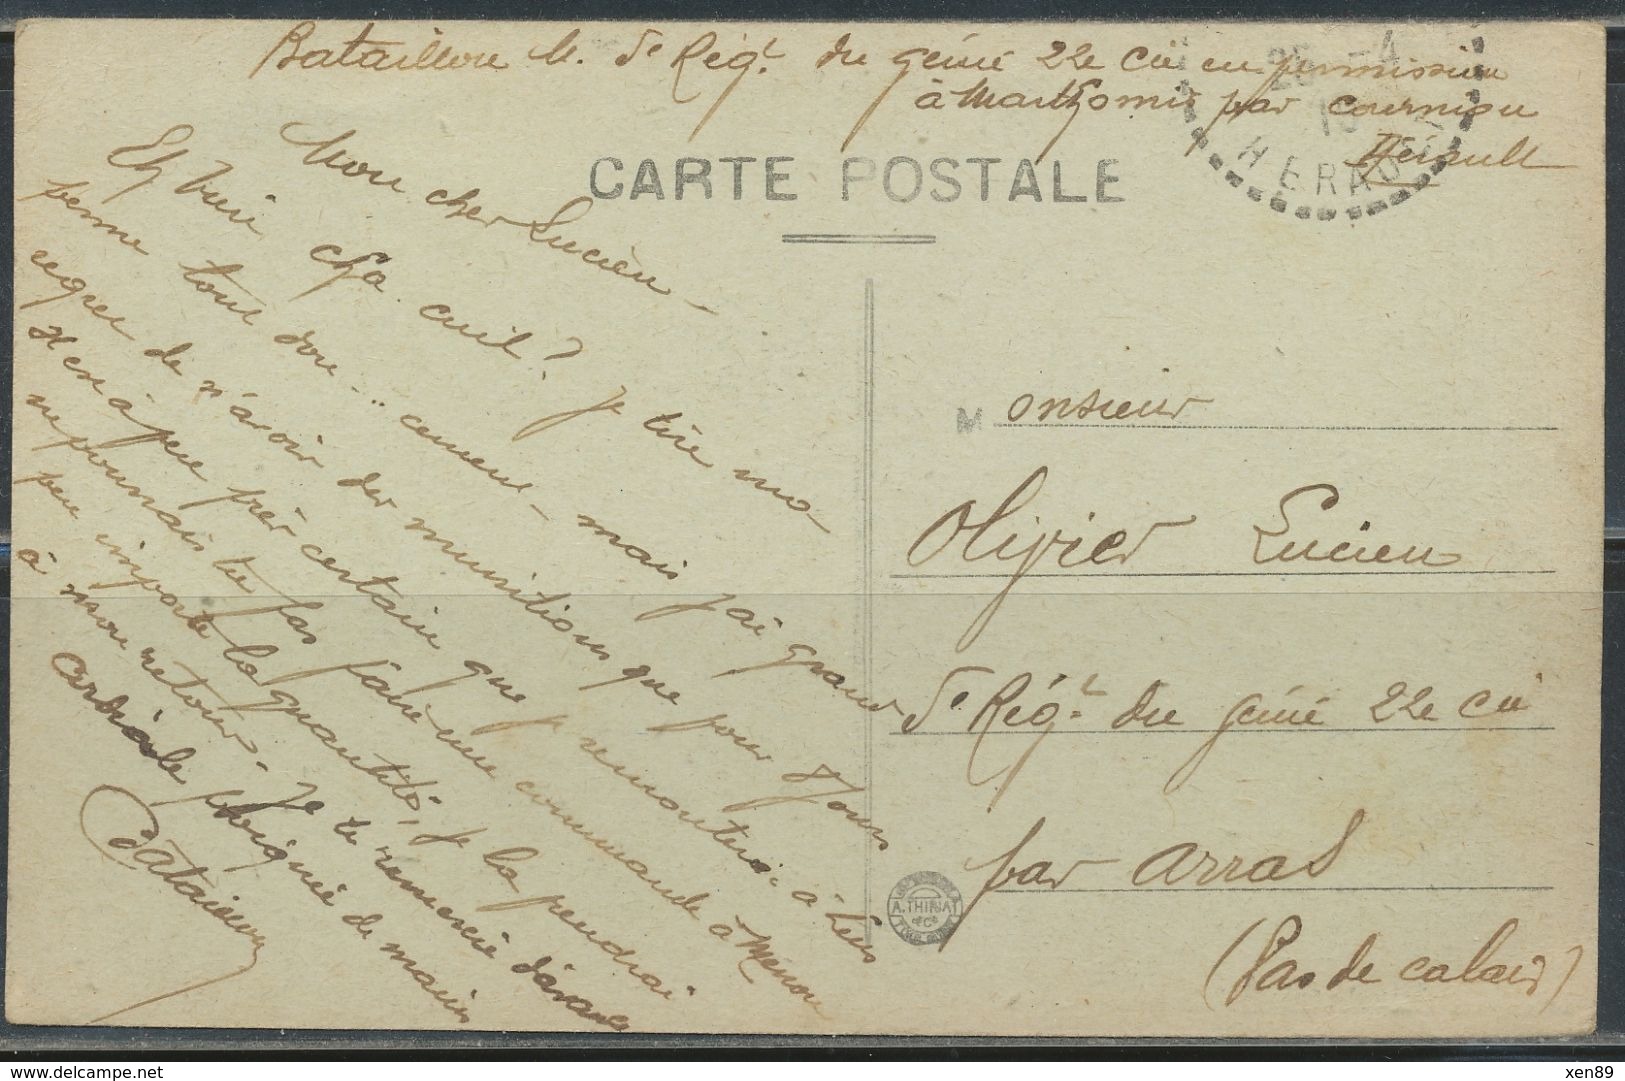 Bataillou M. 5e Régt du génie 22e Cie en permission
à Marthomis par Courniou
Hérault
25 -4
HERAULT
CARTE POSTALE
Mon cher Lucien -
Eh bien cha cuit? Je tire ma
perme tout dou... cement - mais j'ai grand
regret de n'avoir des munitions que pour 8 jours
Il est à peu près certain que je remonterai à Lens
ne pourrais tu pas faire une commande à Menou
peu importe la quantité, je la prendrai
à mon retour. Je te remercie d'avance
Cordiale poignée de mains
Bataillou
Monsieur
Olivier Lucien
5e Régt du génie 22e Cie
par Arras
(Pas de Calais)
A.THIRIAT
delcampe.net
xen89